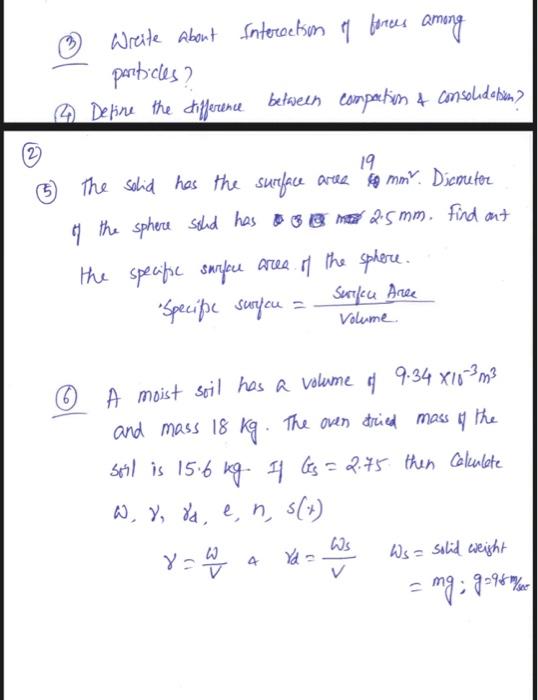 ③ Write about Interaction of forces among
particles?
④ Define the difference between compaction & consolidation?
②
⑤ The solid has the surface area 19 mm². Diameter
of the sphere solid has 2.5 mm. Find out
the specific surface area of the sphere.
Specific surface = Surface Area / Volume
⑥ A moist soil has a volume of 9.34 x10⁻³m³
and mass 18 kg. The oven dried mass of the
soil is 15.6 kg. If Gs = 2.75 then Calculate
ω, γ, γd, e, n, s(%)
γ = W/V & γd = Ws/V Ws = solid weight
= mg; g=9.8 m/sec